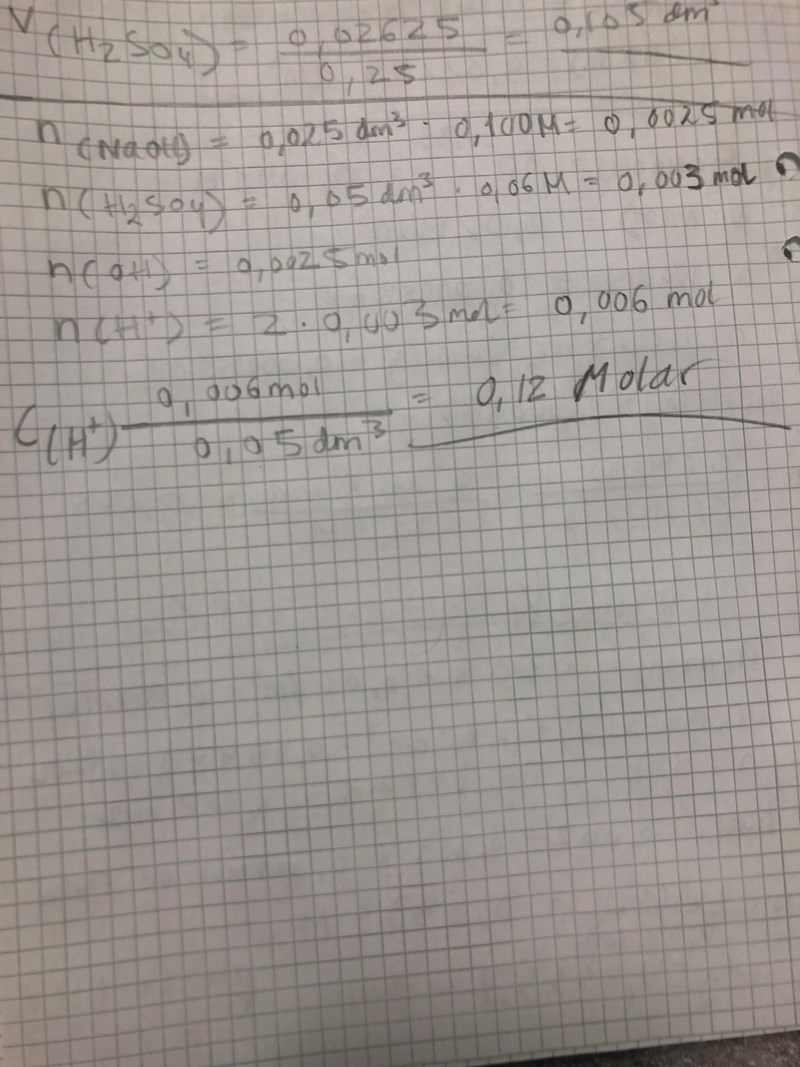 V(H2SO4) = 0,02625 / 0,25 = 0,105 dm³
n(NaOH) = 0,025 dm³ · 0,100M = 0,0025 mol
n(H2SO4) = 0,05 dm³ · 0,06 M = 0,003 mol
n(OH) = 0,0025 mol
n(H+) = 2 · 0,003 mol = 0,006 mol
C(H+) 0,006 mol / 0,05 dm³ = 0,12 Molar